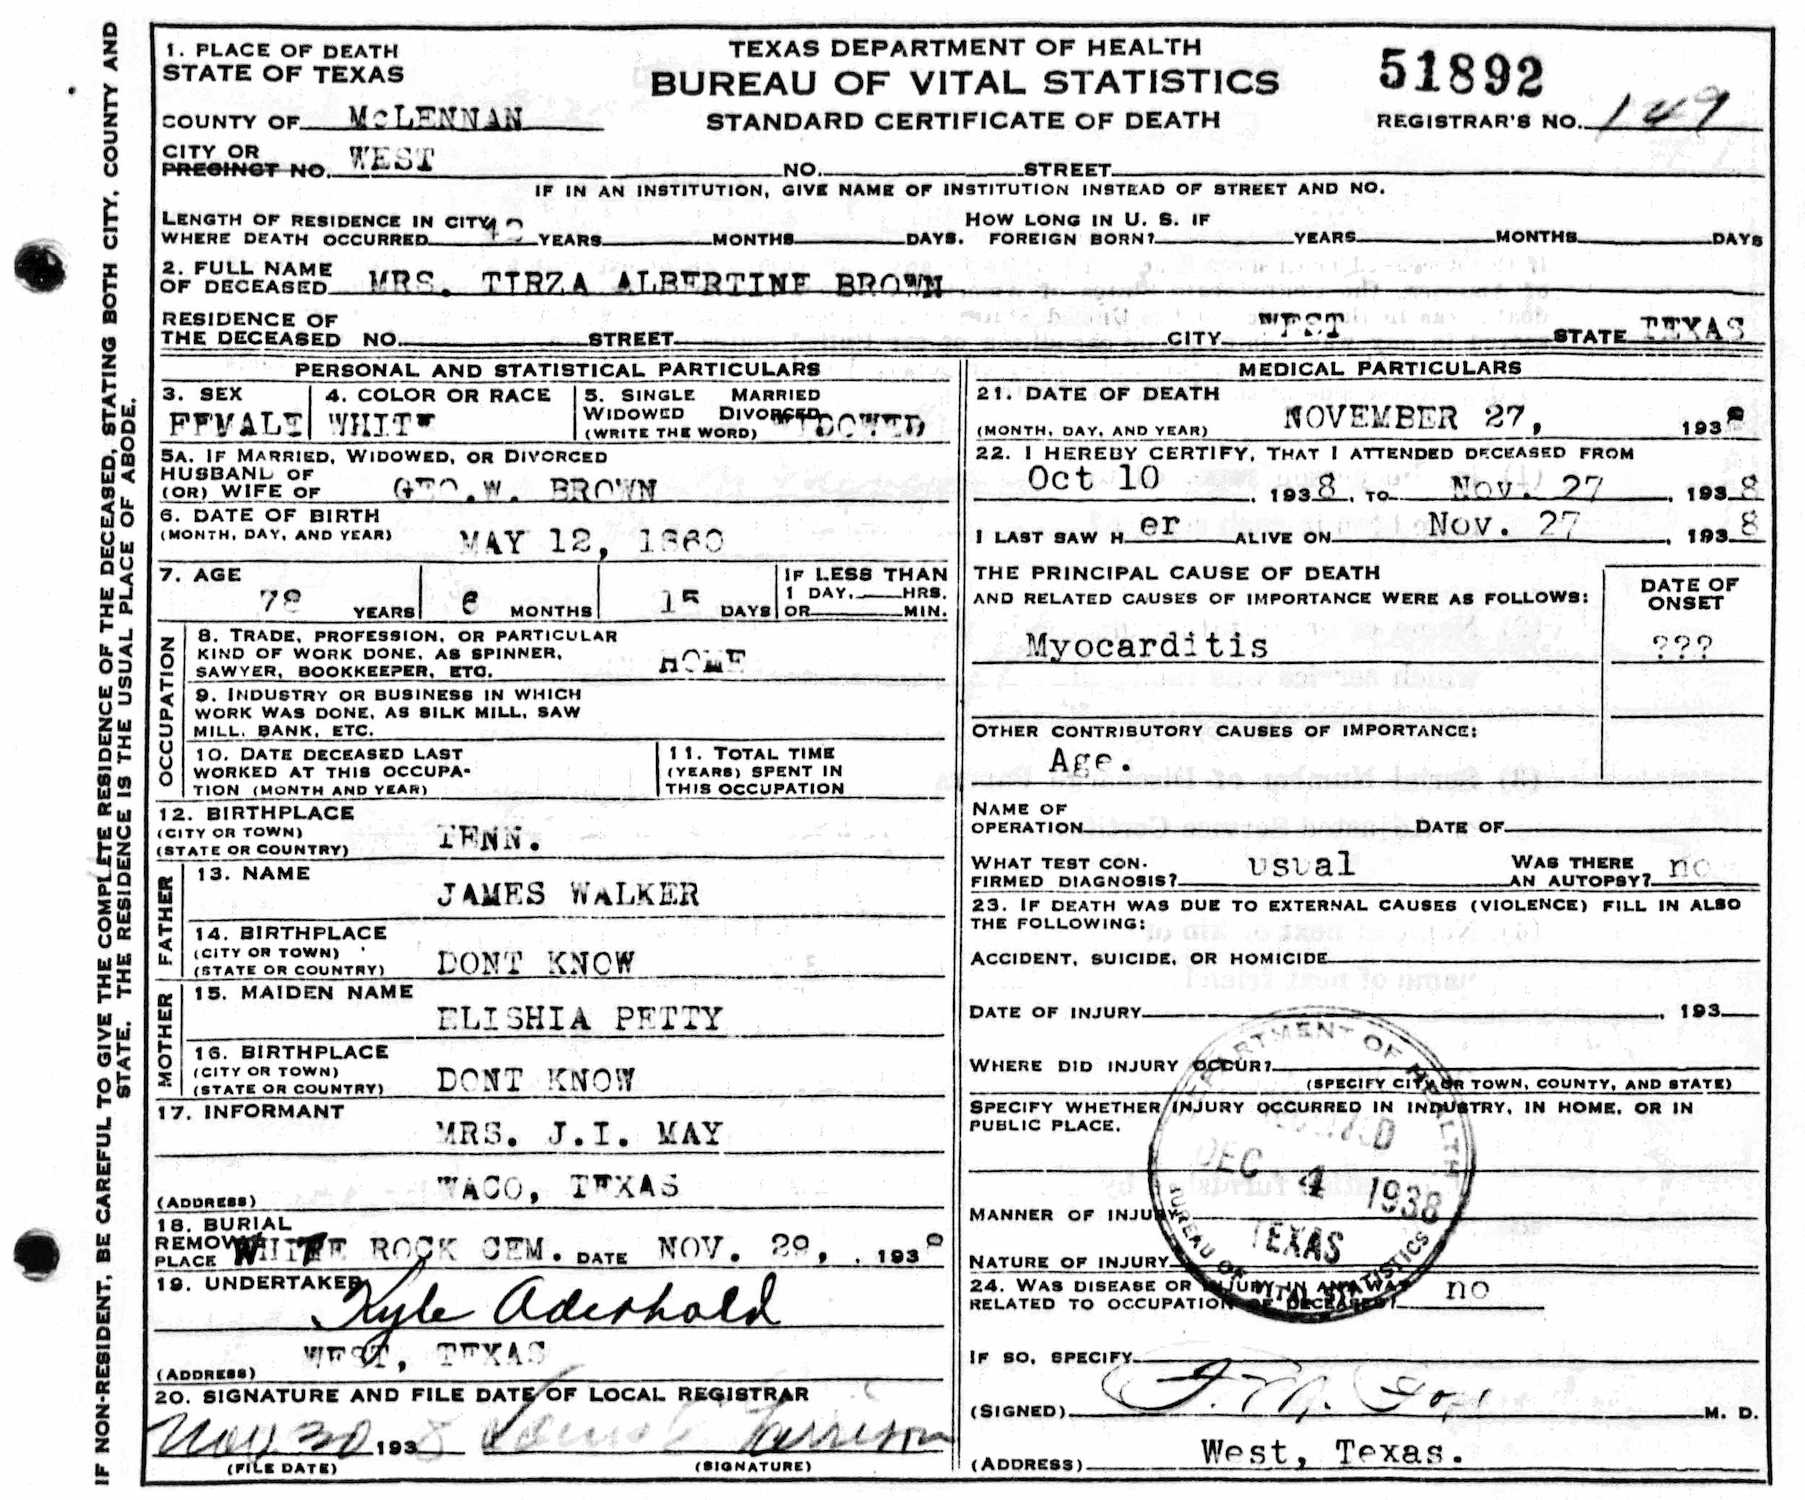 IF NON-RESIDENT, BE CAREFUL TO GIVE THE COMPLETE RESIDENCE OF THE DECEASED, STATING BOTH CITY, COUNTY AND
STATE. THE RESIDENCE IS THE USUAL PLACE OF ABODE.
1. PLACE OF DEATH
STATE OF TEXAS
TEXAS DEPARTMENT OF HEALTH
BUREAU OF VITAL STATISTICS
STANDARD CERTIFICATE OF DEATH
51892
REGISTRAR'S NO. 149
COUNTY OF McLENNAN
CITY OR
PRECINCT NO. WEST NO. STREET
IF IN AN INSTITUTION, GIVE NAME OF INSTITUTION INSTEAD OF STREET AND NO.
LENGTH OF RESIDENCE IN CITY
WHERE DEATH OCCURRED YEARS MONTHS DAYS.
HOW LONG IN U. S. IF
FOREIGN BORN? YEARS MONTHS DAYS
2. FULL NAME
OF DECEASED MRS. TIRZA ALBERTINE BROWN
RESIDENCE OF
THE DECEASED NO. STREET CITY WEST STATE TEXAS
PERSONAL AND STATISTICAL PARTICULARS
3. SEX
FEMALE
4. COLOR OR RACE
WHITE
5. SINGLE MARRIED
WIDOWED DIVORCED
(WRITE THE WORD) WIDOWED
5A. IF MARRIED, WIDOWED, OR DIVORCED
HUSBAND OF
(OR) WIFE OF GEO.W. BROWN
6. DATE OF BIRTH
(MONTH, DAY, AND YEAR) MAY 12, 1860
7. AGE
78 YEARS 6 MONTHS 15 DAYS
IF LESS THAN
1 DAY, HRS.
OR MIN.
OCCUPATION
8. TRADE, PROFESSION, OR PARTICULAR
KIND OF WORK DONE, AS SPINNER,
SAWYER, BOOKKEEPER, ETC. HOME
9. INDUSTRY OR BUSINESS IN WHICH
WORK WAS DONE, AS SILK MILL, SAW
MILL, BANK, ETC.
10. DATE DECEASED LAST
WORKED AT THIS OCCUPA-
TION (MONTH AND YEAR)
11. TOTAL TIME
(YEARS) SPENT IN
THIS OCCUPATION
12. BIRTHPLACE
(CITY OR TOWN)
(STATE OR COUNTRY) TENN.
FATHER
13. NAME
JAMES WALKER
14. BIRTHPLACE
(CITY OR TOWN)
(STATE OR COUNTRY) DONT KNOW
MOTHER
15. MAIDEN NAME
ELISHIA PETTY
16. BIRTHPLACE
(CITY OR TOWN)
(STATE OR COUNTRY) DONT KNOW
17. INFORMANT
MRS. J.I. MAY
WACO, TEXAS
(ADDRESS)
18. BURIAL
REMOVAL
PLACE WHITE ROCK CEM. DATE NOV. 29, , 1938
19. UNDERTAKER
Kyle Aderhold
WEST, TEXAS
(ADDRESS)
20. SIGNATURE AND FILE DATE OF LOCAL REGISTRAR
Nov. 30 1938 Harrison
(FILE DATE) (SIGNATURE)
MEDICAL PARTICULARS
21. DATE OF DEATH
(MONTH, DAY, AND YEAR) NOVEMBER 27, 1938
22. I HEREBY CERTIFY, THAT I ATTENDED DECEASED FROM
Oct 10 , 1938, TO Nov. 27 , 1938
I LAST SAW H er ALIVE ON Nov. 27 , 1938
THE PRINCIPAL CAUSE OF DEATH
AND RELATED CAUSES OF IMPORTANCE WERE AS FOLLOWS:
DATE OF
ONSET
Myocarditis ???
OTHER CONTRIBUTORY CAUSES OF IMPORTANCE:
Age.
NAME OF
OPERATION DATE OF
WHAT TEST CON-
FIRMED DIAGNOSIS? usual
WAS THERE
AN AUTOPSY? no
23. IF DEATH WAS DUE TO EXTERNAL CAUSES (VIOLENCE) FILL IN ALSO
THE FOLLOWING:
ACCIDENT, SUICIDE, OR HOMICIDE
DATE OF INJURY , 193
WHERE DID INJURY OCCUR?
(SPECIFY CITY OR TOWN, COUNTY, AND STATE)
SPECIFY WHETHER INJURY OCCURRED IN INDUSTRY, IN HOME, OR IN
PUBLIC PLACE.
MANNER OF INJURY
NATURE OF INJURY
DEPARTMENT OF HEALTH
RECEIVED
DEC 4 1938
TEXAS
BUREAU OF VITAL STATISTICS
24. WAS DISEASE OR INJURY IN ANY WAY
RELATED TO OCCUPATION OF DECEASED? no
IF SO, SPECIFY
(SIGNED) M. D.
(ADDRESS) West, Texas.